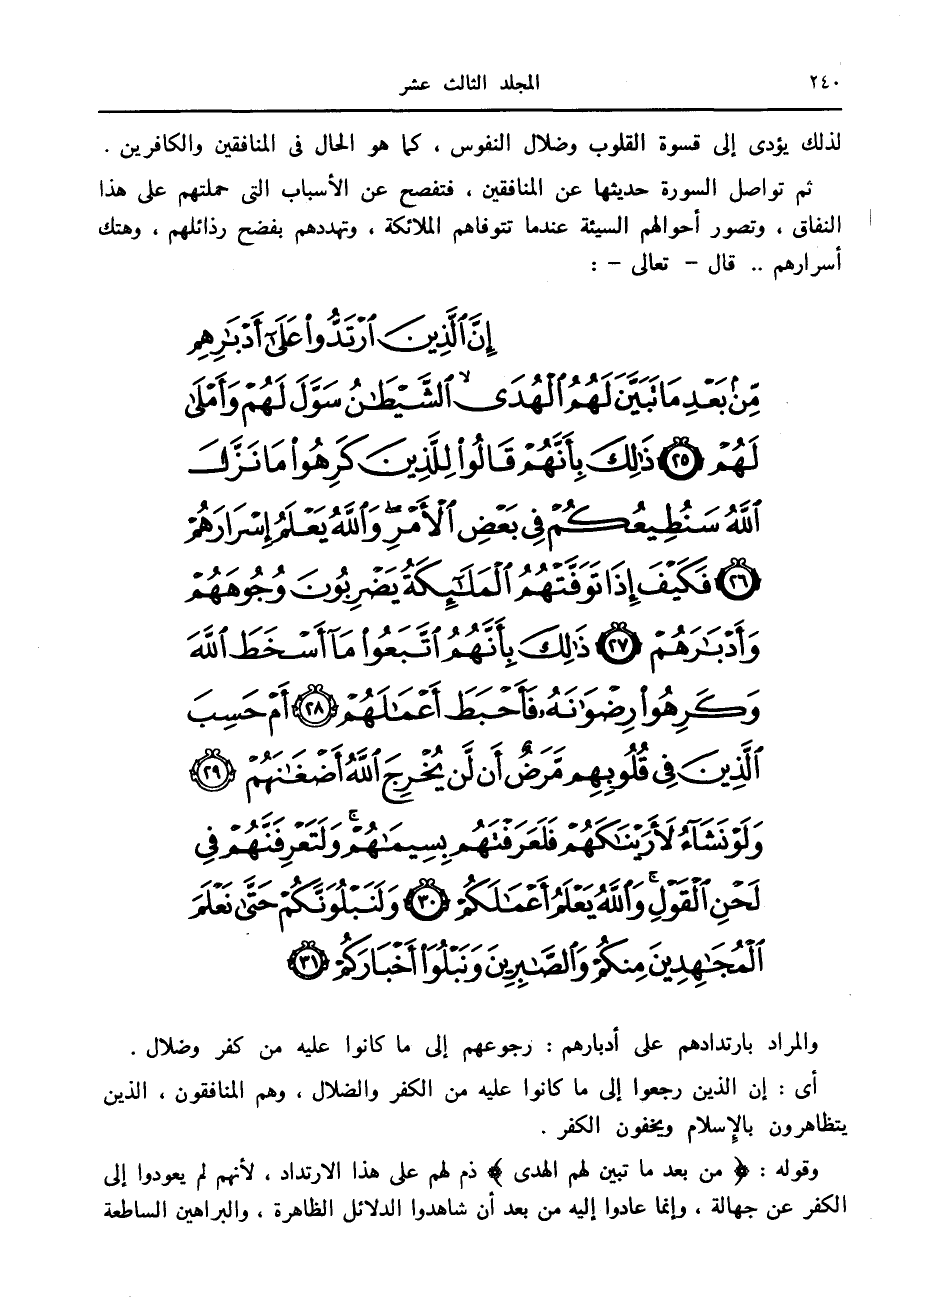 ٢٤٠ المجلد الثالث عشر
لذلك يؤدى إلى قسوة القلوب وضلال النفوس ، كما هو الحال فى المنافقين والكافرين .
ثم تواصل السورة حديثها عن المنافقين ، فتفصح عن الأسباب التى حملتهم على هذا
النفاق ، وتصور أحوالهم السيئة عندما تتوفاهم الملائكة ، وتهددهم بفضح رذائلهم ، وهتك
أسرارهم .. قال – تعالى – :
إِنَّ ٱلَّذِينَ ٱرْتَدُّوا۟ عَلَىٰٓ أَدْبَـٰرِهِم
مِّنۢ بَعْدِ مَا تَبَيَّنَ لَهُمُ ٱلْهُدَى ۙ ٱلشَّيْطَـٰنُ سَوَّلَ لَهُمْ وَأَمْلَىٰ
لَهُمْ ٢٥ ذَٰلِكَ بِأَنَّهُمْ قَالُوا۟ لِلَّذِينَ كَرِهُوا۟ مَا نَزَّلَ
ٱللَّهُ سَنُطِيعُكُمْ فِى بَعْضِ ٱلْأَمْرِ ۖ وَٱللَّهُ يَعْلَمُ إِسْرَارَهُمْ
٢٦ فَكَيْفَ إِذَا تَوَفَّتْهُمُ ٱلْمَلَـٰٓئِكَةُ يَضْرِبُونَ وُجُوهَهُمْ
وَأَدْبَـٰرَهُمْ ٢٧ ذَٰلِكَ بِأَنَّهُمُ ٱتَّبَعُوا۟ مَآ أَسْخَطَ ٱللَّهَ
وَكَرِهُوا۟ رِضْوَٰنَهُۥ فَأَحْبَطَ أَعْمَـٰلَهُمْ ٢٨ أَمْ حَسِبَ
ٱلَّذِينَ فِى قُلُوبِهِم مَّرَضٌ أَن لَّن يُخْرِجَ ٱللَّهُ أَضْغَـٰنَهُمْ ٢٩
وَلَوْ نَشَآءُ لَأَرَيْنَـٰكَهُمْ فَلَعَرَفْتَهُم بِسِيمَـٰهُمْ ۚ وَلَتَعْرِفَنَّهُمْ فِى
لَحْنِ ٱلْقَوْلِ ۚ وَٱللَّهُ يَعْلَمُ أَعْمَـٰلَكُمْ ٣٠ وَلَنَبْلُوَنَّكُمْ حَتَّىٰ نَعْلَمَ
ٱلْمُجَـٰهِدِينَ مِنكُمْ وَٱلصَّـٰبِرِينَ وَنَبْلُوَا۟ أَخْبَارَكُمْ ٣١
والمراد بارتدادهم على أدبارهم : رجوعهم إلى ما كانوا عليه من كفر وضلال .
أى : إن الذين رجعوا إلى ما كانوا عليه من الكفر والضلال ، وهم المنافقون ، الذين
يتظاهرون بالإسلام ويخفون الكفر .
وقوله : ﴿ من بعد ما تبين لهم الهدى ﴾ ذم لهم على هذا الارتداد ، لأنهم لم يعودوا إلى
الكفر عن جهالة ، وإنما عادوا إليه من بعد أن شاهدوا الدلائل الظاهرة ، والبراهين الساطعة